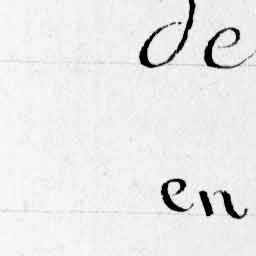 de
en